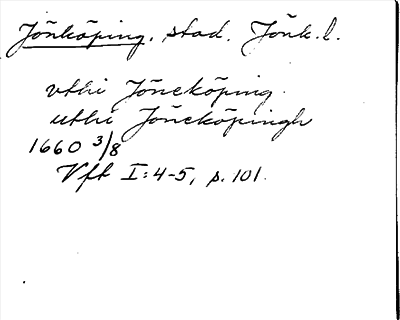 Jönköping. stad. Jönk. l.
vthi Jöneköping.
uthi Jöneköpingh
1660 3/8
Vft I:4-5, p. 101.